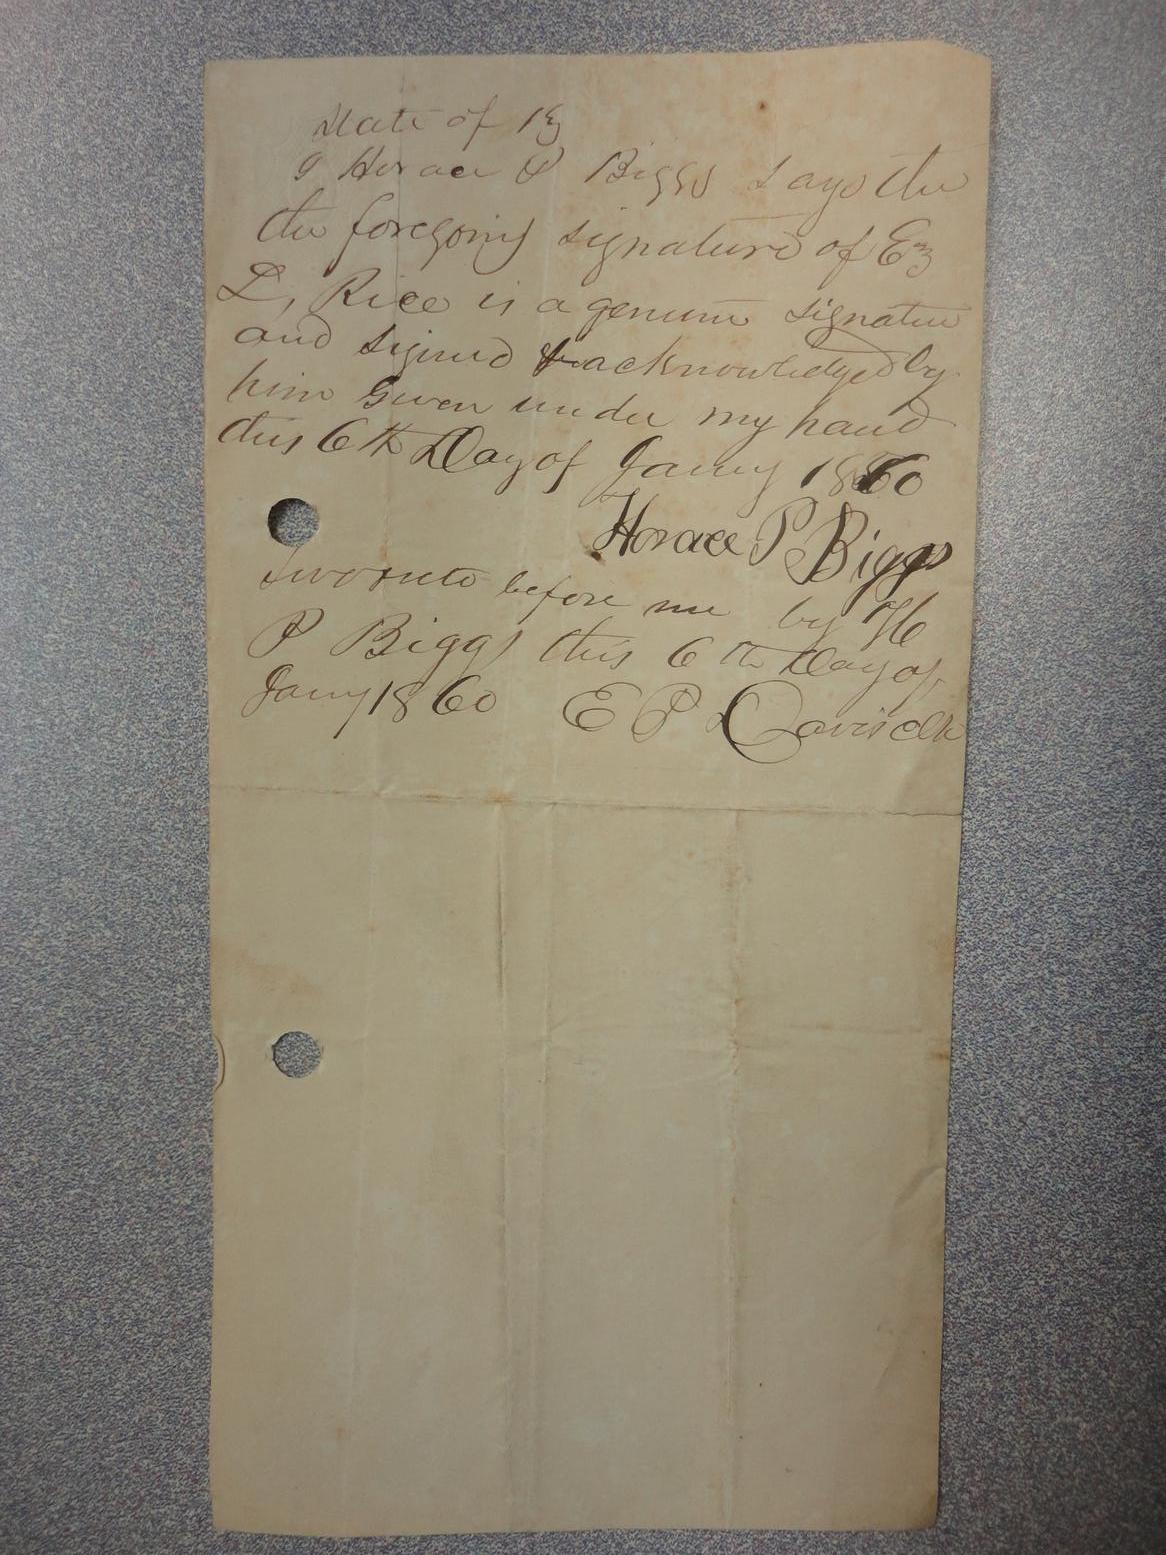 State of Ky
I Horace P Biggs Says the
the foregoing signature of Ez
D, Rice is a genuine signature
and signed & acknowledged by
him Given under my hand
this 6th Day of Jany 1860
Horace P Biggs
Sworn to before me by H
P Biggs this 6th Day of
Jany 1860 E P Davis clk